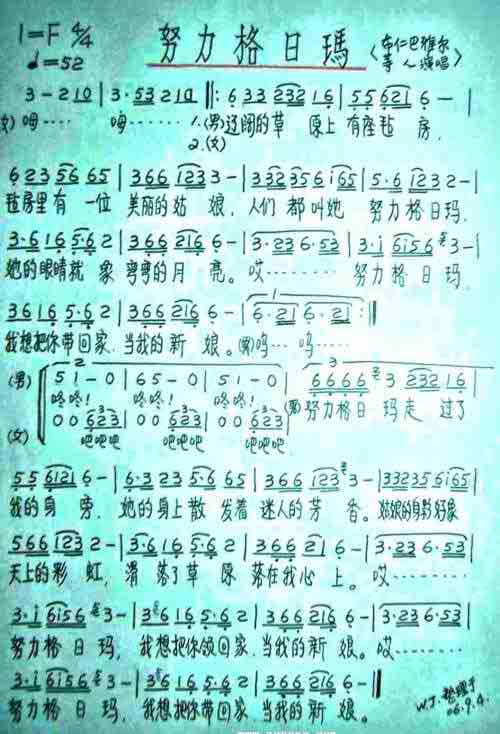 1=F 4/4 努力格日瑪 〈布仁巴雅尔
♩=52 等人演唱〉
3 - 2 1 0 | 3·5 3 2 1 0 ‖: 6 3 3 2 3 2 1 6 | 5 5 6 2 1 6 - |
(女) 呣‥‥ 呣‥‥‥ 1.(男)辽阔的草 原上 有座毡 房,
2.(女)
6 2 3 5 6 6 5 | 3 6 6 1 2 3 3 - | 3 3 2 3 5 6 i 6 5 | 5·6 1 2 3 2 - |
毡房里有 一位 美丽的姑 娘, 人们 都叫她 努力格日玛,
3·6 1 6 5·6 2 | 3 6 6 2 1 6 6 - | 3·2 3 6·5 3 | 3·i 6 1 5 6 3 - |
她的眼睛就 象 弯弯的月 亮。哎‥‥‥‥ 努力格 日 玛,
3 6 1 6 5·6 2 | 3 6 6 2 1 6 6 - | 6·2 1 6·2 1 :‖
我想把你带回家, 当我的新 娘。(男)呜‥‥ 呜‥‥‥
(男) 5 1 - 0 | 6 5 - 0 | 5 1 - 0 | 6 6 6 6 3 2 3 2 1 6 |
咚咚! 咚咚! 咚咚! (男)努力格日 玛走 过了
(女) 0 0 6 2 3 | 0 0 6 2 3 | 0 0 6 2 3 |
吧吧吧 吧吧吧 吧吧吧
5 5 6 1 2 1 6 - | 6·3 2 3 5·6 6 5 | 3 6 6 1 2 3 3 - | 3 3 2 3 5 6 i 6 5 |
我的身 旁, 她的身上散 发着 迷人的芳 香。姑娘的身影好象
5 6 6 1 2 3 2 - | 3·6 1 6 5·6 2 | 3 6 6 2 1 6 - | 3·2 3 6·5 3 |
天上的彩 虹, 滑 落了草 原 落在我心 上。哎‥‥‥‥
3·i 6 1 5 6 3 - | 3 6 1 6 5·6 2 | 3 6 6 2 1 6 6 - | 3·2 3 6·5 3 |
努力格 日 玛, 我想把你领回家, 当我的新 娘。哎‥‥‥‥
3·i 6 1 5 6 3 - | 3 6 1 6 5·6 2 | 3 6 6 2 1 6 6 - ‖
努力格 日 玛, 我想把你带回家 当我的新 娘。
W.J. 整理于
06.9.4.